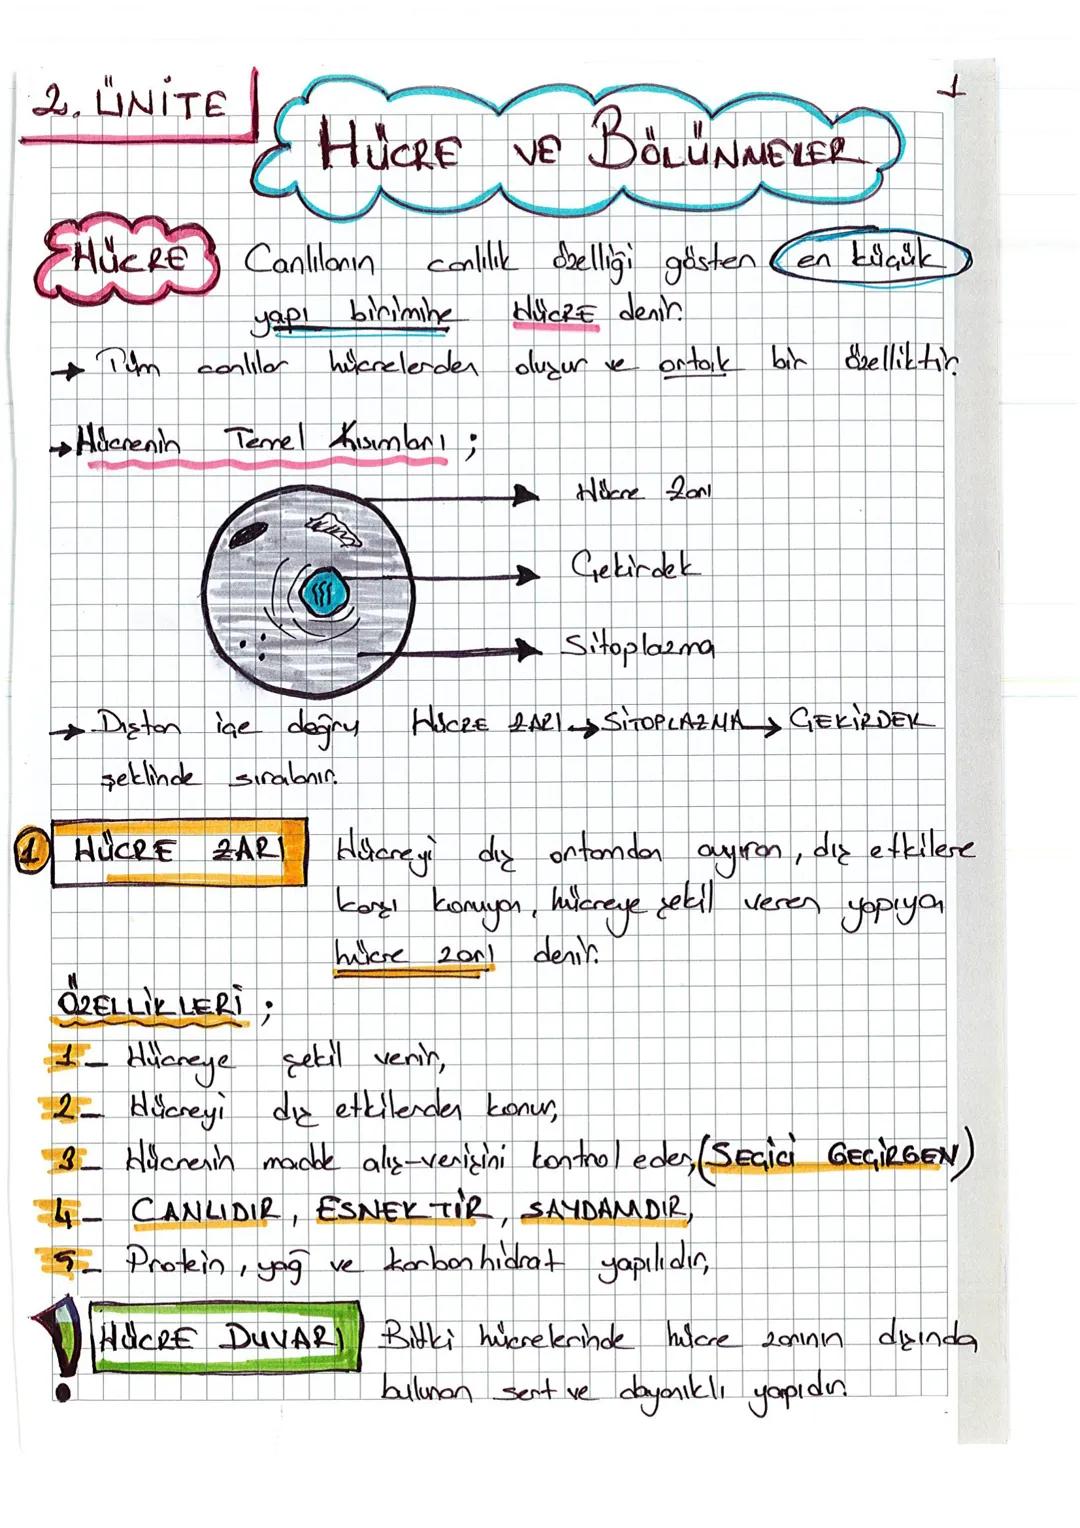 2. ÜNİTE
1
HÜCRE VE BÖLÜNMELER
HÜCRE Canlıların canlılık özelliği gösten en küçük
yapı birimine HÜCRE denir.
→ Tüm canlılar hücrelerden oluşur ve ortak bir özelliktir.
→ Hücrenin Temel Kısımları ;
Hücre Zarı
Çekirdek
Sitoplazma
→ Dıştan içe doğru HÜCRE ZARI → SİTOPLAZMA → ÇEKİRDEK
şeklinde sıralanır.
1 HÜCRE ZARI Hücreyi dış ortamdan ayıran, dış etkilere
karşı koruyan, hücreye şekil veren yapıya
hücre zarı denir.
ÖZELLİKLERİ ;
1- Hücreye şekil verir,
2- Hücreyi dış etkilerden korur,
3- Hücrenin madde alış-verişini kontrol eder, (SEÇİCİ GEÇİRGEN)
4- CANLIDIR, ESNEKTİR, SAYDAMDIR,
5- Protein, yağ ve karbonhidrat yapılıdır,
! HÜCRE DUVARI Bitki hücrelerinde hücre zarının dışında
bulunan sert ve dayanıklı yapıdır.